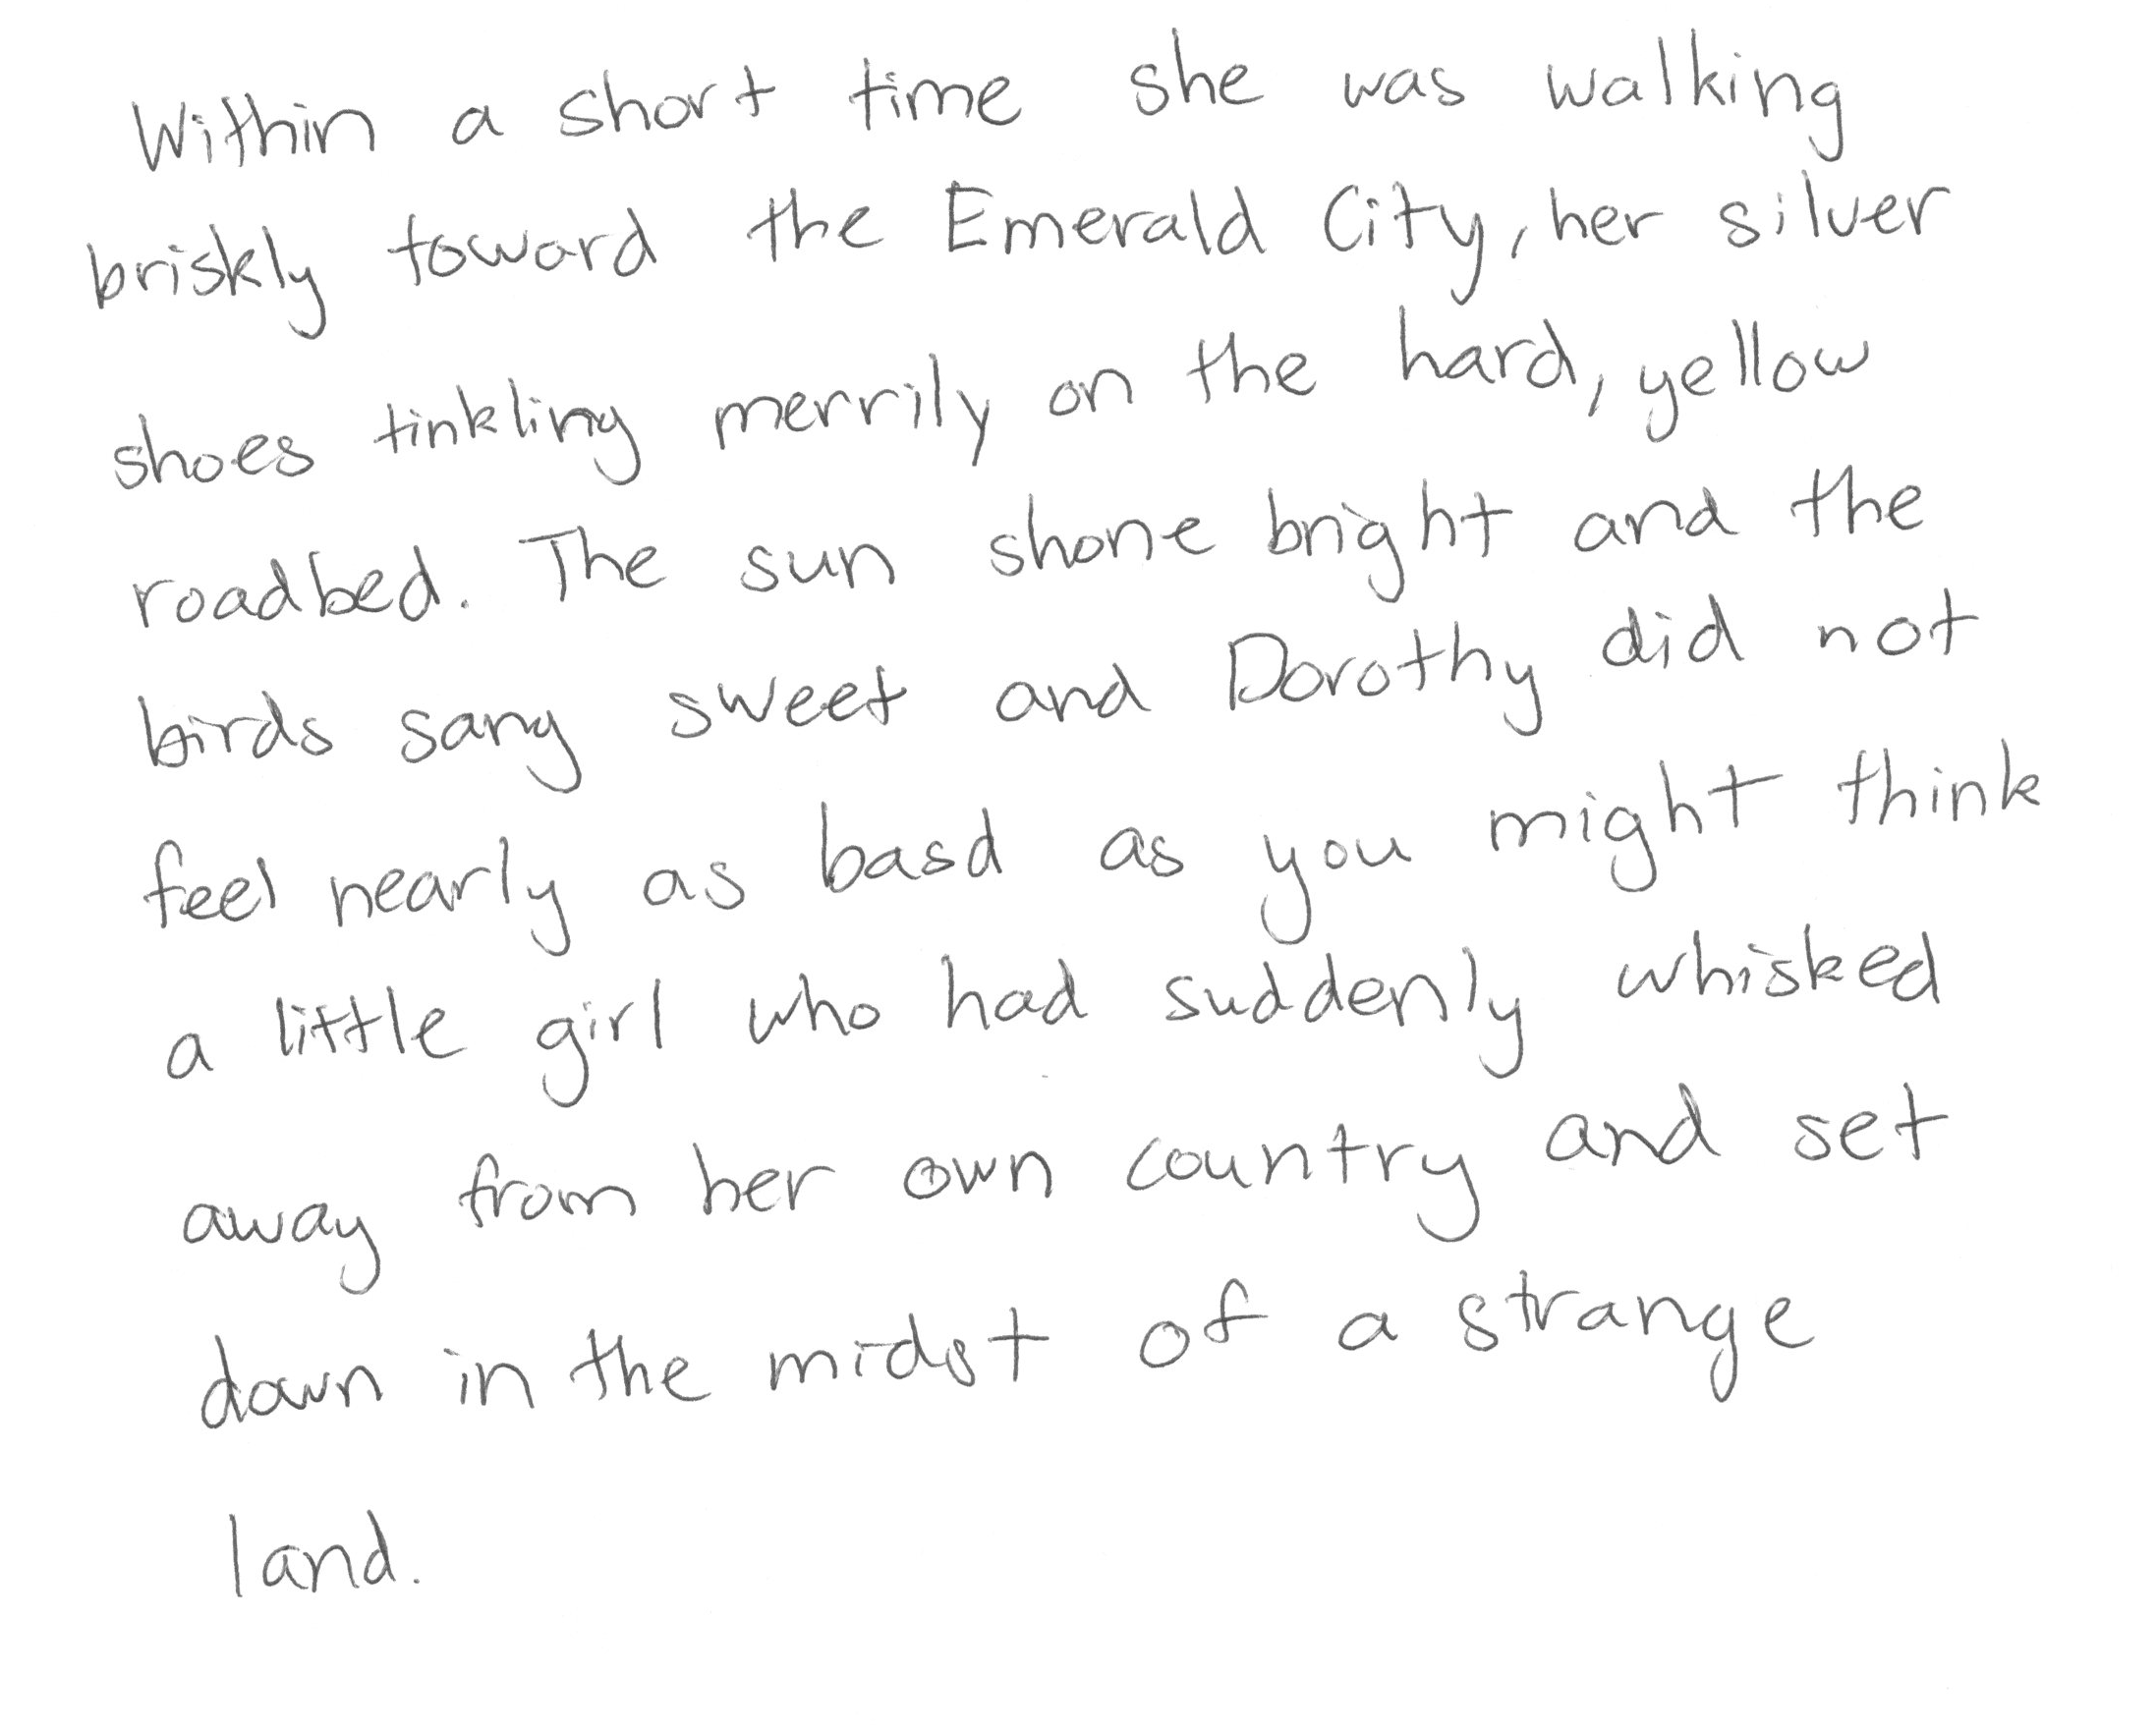 Within a short time she was walking
briskly toward the Emerald City, her silver
shoes tinkling merrily on the hard, yellow
roadbed. The sun shone bright and the
birds sang sweet and Dorothy did not
feel nearly as basd as you might think
a little girl who had suddenly whisked
away from her own country and set
down in the midst of a strange
land.